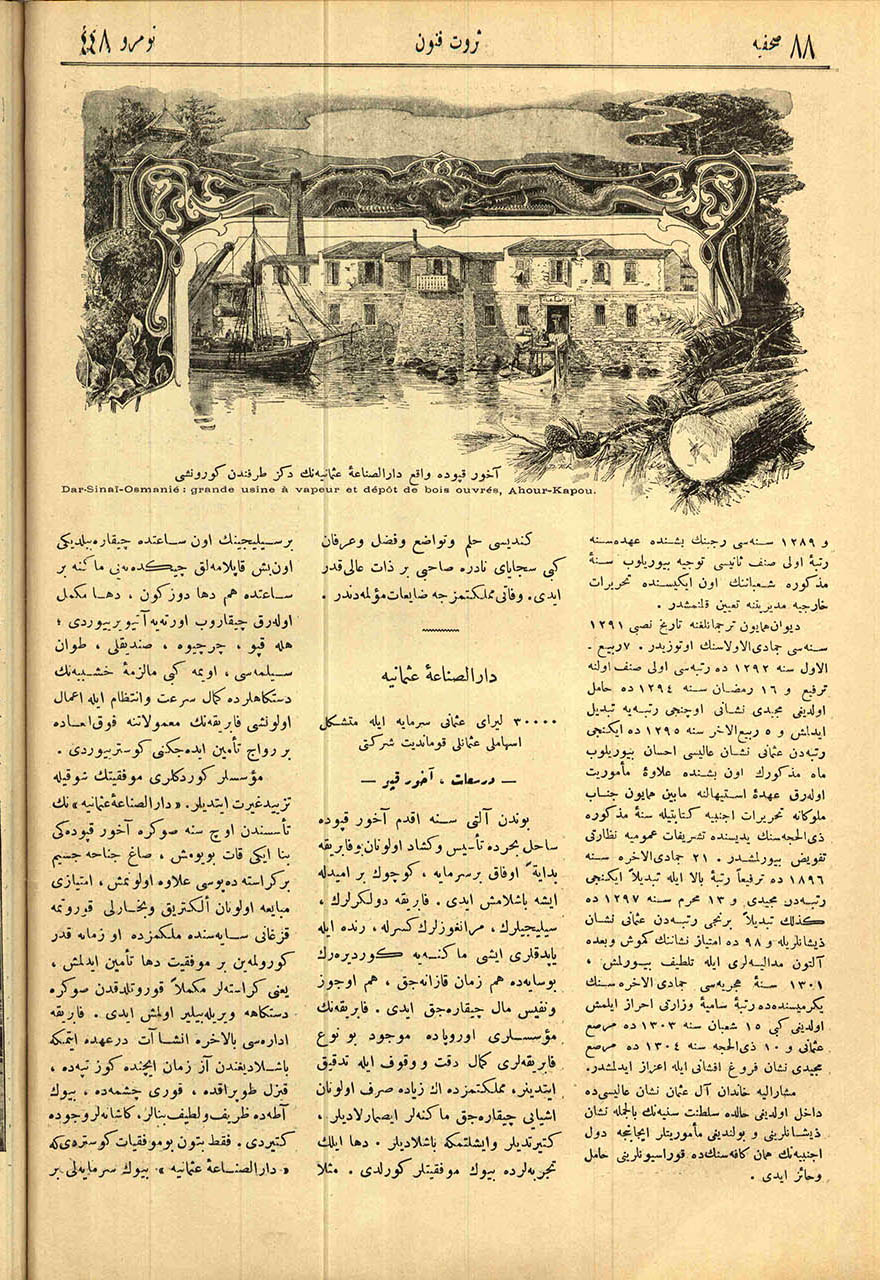 صحفه ٨٨
ثروت فنون
نومرو ٤٤٨
آخور قپوده واقع دارالصناعهٔ عثمانیه‌نك دكز طرفندن كورونشی
Dar-Sinaï-Osmanié : grande usine à vapeur et dépôt de bois ouvrés, Ahour-Kapou.
و ١٢٨٩ سنه‌سی رجبنك بشنده عهده‌سنه
رتبهٔ اولی صنف ثانیسی توجیه بیوریلوب سنهٔ
مذكوره شعباننك اون ایكیسنده تحریرات
خارجیه مدیریتنه تعیین قلنمشدر .
دیوان همایون ترجمانلغنه تاریخ نصبی ١٢٩١
سنه‌سی جمادی‌الاولاسنك اوتوزیدر . ٧ ربیع ـ
الاول سنه ١٢٩٢ ده رتبه‌سی اولی صنف اولنه
ترفیع و ١٦ رمضان سنه ١٢٩٤ ده حامل
اولدیغی مجیدی نشانی اوچنجی رتبه‌یه تبدیل
ایدلمش و ٥ ربیع‌الاخر سنه ١٢٩٥ ده ایكنجی
رتبه‌دن عثمانی نشان عالیسی احسان بیوریلوب
ماه مذكورك اون بشنده علاوهٔ مأموریت
اوله‌رق عهدهٔ استیهالنه مابین همایون جناب
ملوكانه تحریرات اجنبیه كتابتیله سنهٔ مذكوره
ذی‌الحجه‌سنك یدیسنده تشریفات عمومیه نظارتی
تفویض بیورلمشدر . ٢١ جمادی‌الاخره سنه
١٨٩٦ ده ترفیعاً رتبهٔ بالا ایله تبدیلاً ایكنجی
رتبه‌دن مجیدی و ١٣ محرم سنه ١٢٩٧ ده
كذلك تبدیلاً برنجی رتبه‌دن عثمانی نشان
ذیشانلریله و ٩٨ ده امتیاز نشاننك كموش وبعده
آلتون مدالیه‌لری ایله تلطیف بیورلمش ،
١٣٠١ سنهٔ هجریه‌سی جمادی الاخره‌سنك
یكرمیسنده‌ده رتبهٔ سامیهٔ وزارتی احراز ایلمش
اولدیغی كبی ١٥ شعبان سنه ١٣٠٣ ده مرصع
عثمانی و ١٠ ذی‌الحجه سنه ١٣٠٤ ده مرصع
مجیدی نشان فروغ افشانی ایله اعزاز ایدلمشدر.
مشارالیه خاندان آل عثمان نشان عالیسی‌ده
داخل اولدیغی حالده سلطنت سنیه‌نك بالجمله نشان
ذیشانلرینی و بولندیغی مأموریتلر ایجابنجه دول
اجنبیه‌نك همان كافه‌سنك‌ده قوردونلرینی حامل
وحائز ایدی .
كندیسی حلم وتواضع وفضل وعرفان
كبی سجایای نادره صاحبی بر ذات عالی‌قدر
ایدی. وفاتی مملكتمزجه ضایعات مؤلمه‌دندر .
دارالصناعهٔ عثمانیه
٣٠٠٠٠ لیرای عثمانی سرمایه ایله متشكل
اسهاملی عثمانلی قوماندیت شركتی
— درسعادت ، آخور قپو —
بوندن آلتی سنه اقدم آخور قپوده
ساحل بحرده تأسیس وكشاد اولونان بوفابریقه
بدایةً اوفاق برسرمایه ، كوچوك بر امیدله
ایشه باشلامش ایدی . فابریقه دولكرلرك ،
سیلیجیلرك ، مرانغوزلرك كسرله ، رنده ایله
یاپدقلری ایشی ماكنه‌یه كوردیره‌رك
بوسایه‌ده هم زمان قازانه‌جق ، هم اوجوز
ونفیس مال چیقاره‌جق ایدی . فابریقه‌نك
مؤسسلری اوروپاده موجود بو نوع
فابریقه‌لری كمال دقت و وقوف ایله تدقیق
ایتدیلر، مملكتمزده اك زیاده صرف اولونان
اشیایی چیقاره‌جق ماكنه‌لر ایصمارلادیلر ،
كتیرتدیلر وایشلتمكه باشلادیلر . دها ایلك
تجربه‌لرده بیوك موفقیتلر كورلدی . مثلا
برسیلیجینك اون ساعتده چیقاره‌بیلدیكی
اون‌بش قاپلامه‌لق چیكده‌یی ماكنه بر
ساعتده هم دها دوزكون ، دها مكمل
اوله‌رق چیقاروب اورته‌یه آتیویرییوردی ؛
هله قپو ، چرچیوه ، صندیقلی ، طوان
سیلمه‌سی ، اویمه كبی مالزمهٔ خشبیه‌نك
دستكاهلرده كمال سرعت وانتظام ایله اعمال
اولونشی فابریقه‌نك معمولاتنه فوق‌العاده
بر رواج تأمین ایده‌جكنی كوستریوردی .
مؤسسلر كوردكلری موفقیتك شوقیله
تزییدغیرت ایتدیلر. «دارالصناعهٔ عثمانیه» نك
تأسسندن اوچ سنه صوكره آخور قپوده‌كی
بنا ایكی قات بویومش ، صاغ جناحه جسیم
بركراسته ده‌پوسی علاوه اولونمش ، امتیازی
مبایعه اولونان ألكتریق وبخارلی قوروتمه
قزغانی سایه‌سنده ملكمزده او زمانه قدر
كورولمه‌ین بر موفقیت دها تأمین ایدلمش ،
یعنی كراسته‌لر مكملاً قوروتلدقدن صوكره
دستكاهه ویریله‌بیلیر اولمش ایدی . فابریقه
اداره‌سی بالاخره انشاآت درعهده ایتمكه
باشلادیغندن آز زمان ایچنده كوز تپه‌ده ،
قیزل طوپراقده ، قوری چشمه‌ده ، بیوك
آطه‌ده ظریف ولطیف بنالر، كاشانه‌لر وجوده
كتیردی . فقط بتون بوموفقیات كوستره‌ی‌كه
«دارالصناعهٔ عثمانیه» بیوك سرمایه‌لی بر